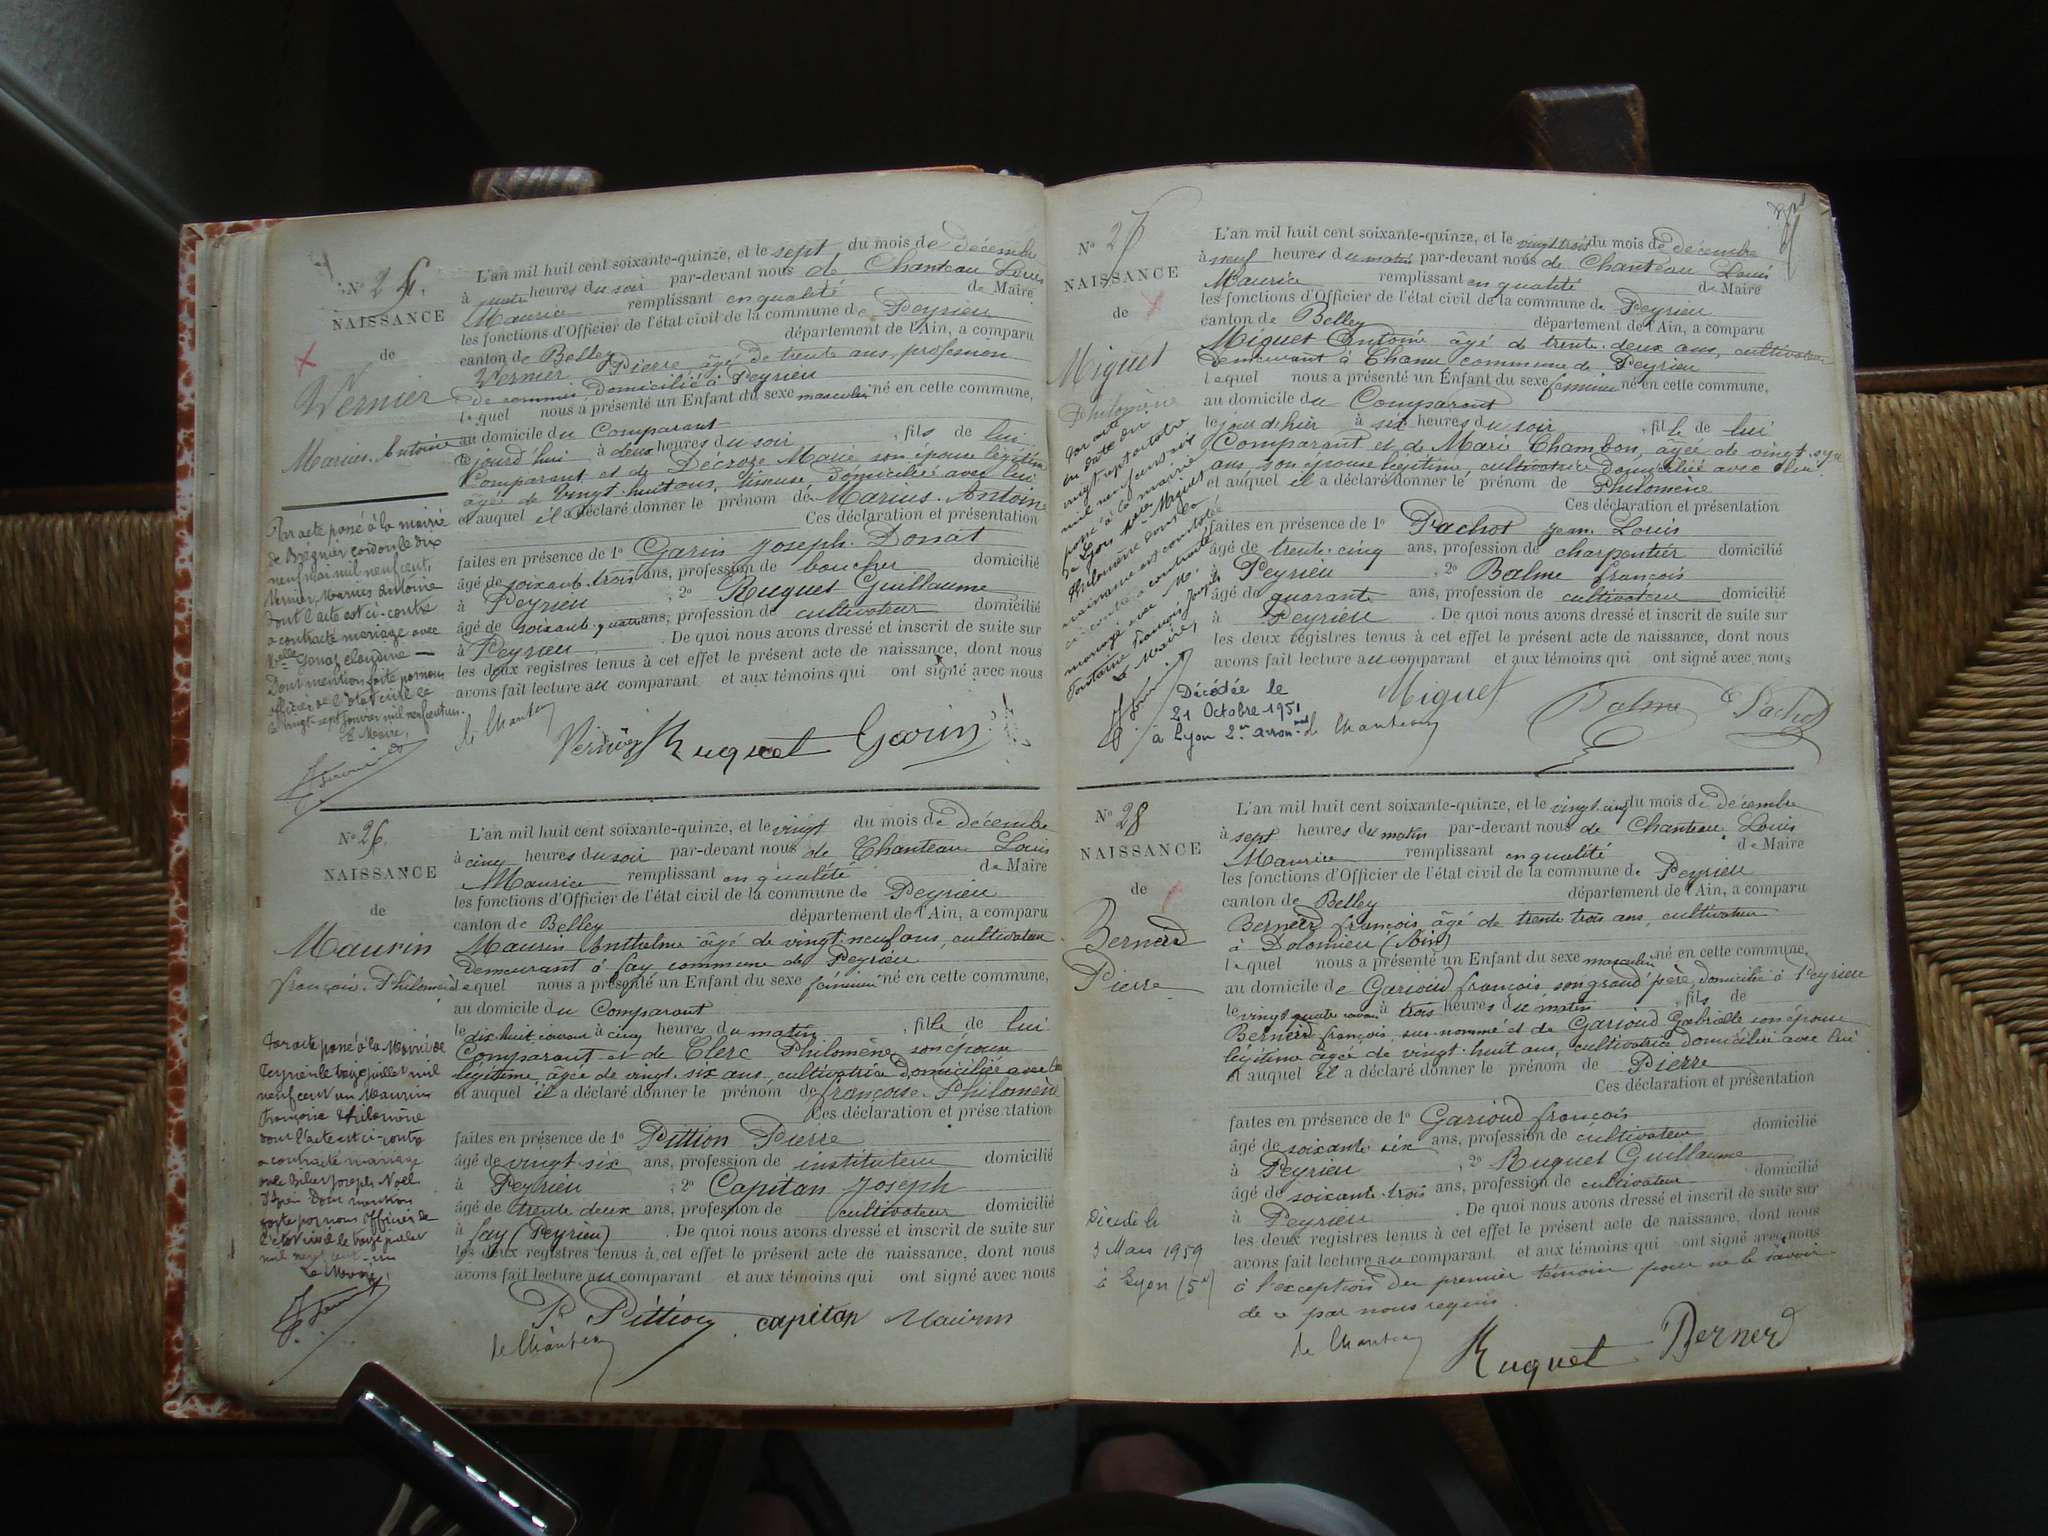 No 25.
NAISSANCE
de
Vernier
Marius Antoine
L'an mil huit cent soixante-quinze, et le sept du mois de décembre
à quatre heures du soir par-devant nous de Chanteau Louis
Maurice remplissant en qualité de Maire
les fonctions d'Officier de l'état civil de la commune de Peyrieu
canton de Belley département de l'Ain, a comparu
Vernier Pierre âgé de trente ans, profession
de commis, domicilié à Peyrieu
lequel nous a présenté un Enfant du sexe masculin né en cette commune,
au domicile du Comparant
ce jourd'hui à deux heures du soir, fils de lui
Comparant et de Décroze Marie son épouse légitime
âgée de vingt huit ans, domiciliée avec lui
et auquel il a déclaré donner le prénom de Marius-Antoine
Ces déclaration et présentation
faites en présence de 1° Garin Joseph Donat
âgé de soixante trois ans, profession de boucher domicilié
à Peyrieu, 2° Ruguet Guillaume
âgé de soixante quatre ans, profession de cultivateur domicilié
à Peyrieu. De quoi nous avons dressé et inscrit de suite sur
les deux registres tenus à cet effet le présent acte de naissance, dont nous
avons fait lecture au comparant et aux témoins qui ont signé avec nous
de Chanteau Vernier Ruguet Garin
Par acte passé à la mairie
de Brégnier cordon le dix
neuf mai mil neuf cent,
Vernier Marius Antoine
dont l'acte est ci-contre
a contracté mariage avec
Dont mention faite par nous
officier de l'état civil le
vingt sept janvier mil neuf cent un.
Le Maire,
No 26.
NAISSANCE
de
Maurin
Françoise Philomène
L'an mil huit cent soixante-quinze, et le vingt du mois de décembre
à cinq heures du soir par-devant nous de Chanteau Louis
Maurice remplissant en qualité de Maire
les fonctions d'Officier de l'état civil de la commune de Peyrieu
canton de Belley département de l'Ain, a comparu
Maurin Anthelme âgé de vingt neuf ans, cultivateur
demeurant à fay commune de Peyrieu
lequel nous a présenté un Enfant du sexe féminin né en cette commune,
au domicile du Comparant
le dix huit courant à cinq heures du matin, fille de lui
Comparant et de Clerc Philomène son épouse
légitime âgée de vingt six ans, cultivatrice domiciliée avec lui
et auquel il a déclaré donner le prénom de françoise-Philomène
Ces déclaration et présentation
faites en présence de 1° Pittion Pierre
âgé de vingt six ans, profession de instituteur domicilié
à Peyrieu, 2° Capitan Joseph
âgé de trente deux ans, profession de cultivateur domicilié
à fay (Peyrieu). De quoi nous avons dressé et inscrit de suite sur
les deux registres tenus à cet effet le présent acte de naissance, dont nous
avons fait lecture au comparant et aux témoins qui ont signé avec nous
P. Pittion capitan Maurin
de Chanteau
Par acte passé à la Mairie de
Peyrieu le treize juillet mil
neuf cent un Maurin
Françoise Philomène
dont l'acte est ci-contre
a contracté mariage
avec Joseph Noël
Dont mention
faite par nous Officier de
l'état civil le treize juillet
mil neuf cent un
Le Maire,
No 27
NAISSANCE
de
Miguet
Philomène
L'an mil huit cent soixante-quinze, et le vingt trois du mois de décembre
à neuf heures du matin par-devant nous de Chanteau Louis
Maurice remplissant en qualité de Maire
les fonctions d'Officier de l'état civil de la commune de Peyrieu
canton de Belley département de l'Ain, a comparu
Miguet Antoine âgé de trente-deux ans, cultivateur
demeurant à commune de Peyrieu
lequel nous a présenté un Enfant du sexe féminin né en cette commune,
au domicile du Comparant
le jour d'hier à six heures du soir, fille de lui
Comparant et de Marie Chambon, âgée de vingt sept
ans, son épouse légitime, cultivatrice domiciliée avec lui
et auquel il a déclaré donner le prénom de Philomène
Ces déclaration et présentation
faites en présence de 1° Pachot Jean Louis
âgé de trente-cinq ans, profession de charpentier domicilié
à Peyrieu, 2° Balme françois
âgé de quarante ans, profession de cultivateur domicilié
à Peyrieu. De quoi nous avons dressé et inscrit de suite sur
les deux registres tenus à cet effet le présent acte de naissance, dont nous
avons fait lecture au comparant et aux témoins qui ont signé avec nous
Miguet Balme Pachot
de Chanteau
Par acte
en date du
vingt sept octobre
mil neuf cent
passé à la mairie
de Lyon Miguet
Philomène dont la
naissance est constatée
ci-contre a contracté
mariage avec M.
François Joseph
Le Maire,
Décédée le
21 Octobre 1951
à Lyon 2e arron.
No 28
NAISSANCE
de
Bernerd
Pierre
L'an mil huit cent soixante-quinze, et le vingt cinq du mois de décembre
à sept heures du matin par-devant nous de Chanteau Louis
Maurice remplissant en qualité de Maire
les fonctions d'Officier de l'état civil de la commune de Peyrieu
canton de Belley département de l'Ain, a comparu
Bernerd françois âgé de trente trois ans, cultivateur
à Dolomieu
lequel nous a présenté un Enfant du sexe masculin né en cette commune,
au domicile de Garioud françois son grand père, domicilié à Peyrieu
le vingt quatre courant à trois heures du matin, fils de
Bernerd françois, sus-nommé et de Garioud Gabrielle son épouse
légitime âgée de vingt-huit ans, cultivatrice domiciliée avec lui
et auquel il a déclaré donner le prénom de Pierre
Ces déclaration et présentation
faites en présence de 1° Garioud françois
âgé de soixante six ans, profession de cultivateur domicilié
à Peyrieu, 2° Ruguet Guillaume
âgé de soixante-trois ans, profession de cultivateur domicilié
à Peyrieu. De quoi nous avons dressé et inscrit de suite sur
les deux registres tenus à cet effet le présent acte de naissance, dont nous
avons fait lecture au comparant et aux témoins qui ont signé avec nous
à l'exception du premier témoin pour ne le savoir
de ce par nous requis
de Chanteau Ruguet Bernerd
Décédé le
3 Mars 1959
à Lyon (5e)